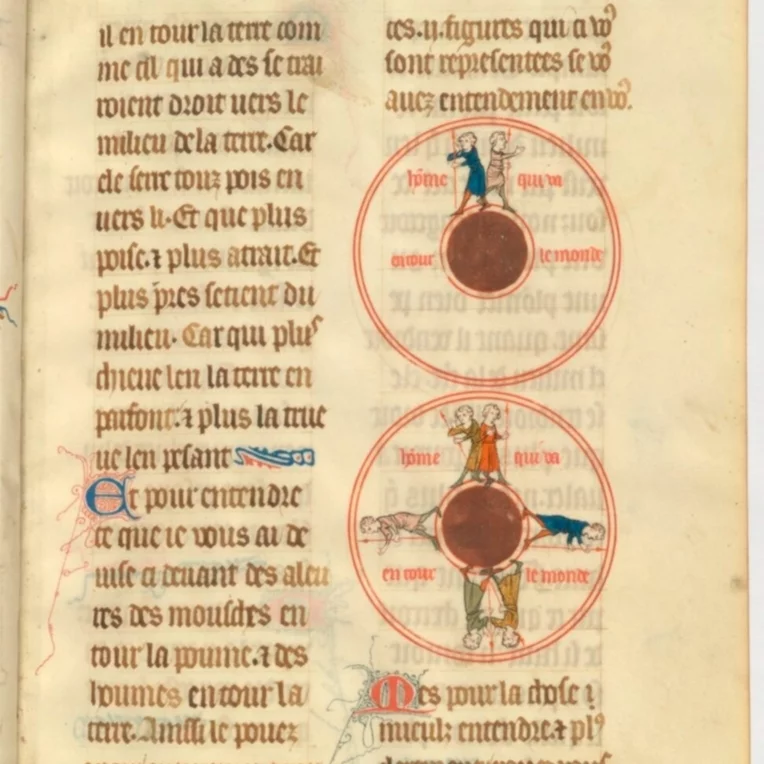 il en tour la terre com
me cil qui a des se trai
roient droit uers le
milieu de la terre. Car
ele sert touz pois en
uers li. Et que plus
poise. ⁊ plus atrait. Et
plus p̃res se tient du
milieu. Car qui plus
chieue len la terre en
parfont. ⁊ plus la true
ue len pesant
Et pour entendre
ce que ie vous ai de
uise ci deuant des aleu
res des mousches en
tour la poume. ⁊ des
houmes en tour la
terre. Ainssi le pouez
ces .ij. figures qui ci vo᾽
sont representees se vo᾽
auez entendement en vo᾽.
hõme qui va
entour le monde
hõme qui va
en tour le monde
Mes pour la chose i
mieulz entendre ⁊ pl᾽